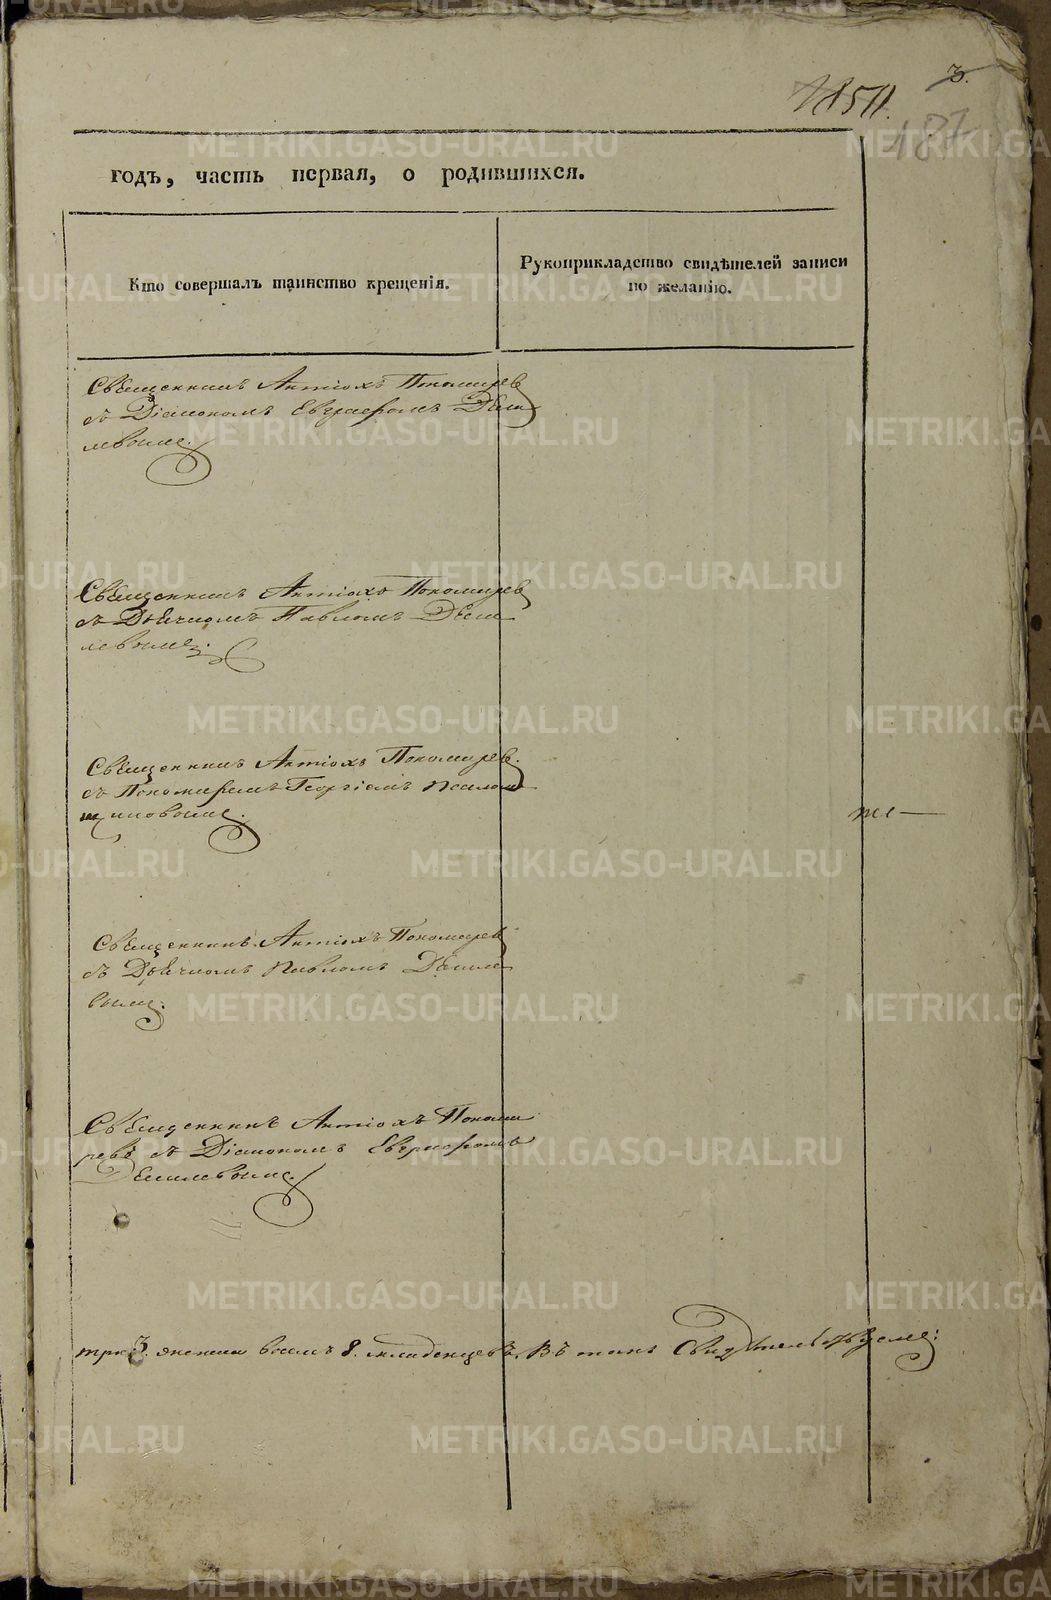 3.
187
годъ, часть первая, о родившихся.
Кто совершалъ таинство крещенія.
Рукоприкладство свидѣтелей записи
по желанію.
Священникъ Антіохъ Пономарев
съ Діакономъ Евграфомъ
Священникъ Антіохъ Пономарев
съ Дьячкомъ Павломъ
Священникъ Антіохъ Пономарев.
съ Пономаремъ Георгіемъ
Священникъ Антіохъ Пономарев
съ Дьячкомъ Павломъ
Священникъ Антіохъ Понома
ревъ съ Діакономъ Евграфомъ
три 3. женска восемь 8. младенцевъ. Въ томъ Свидѣтельствуемъ:
METRIKI.GASO-URAL.RU